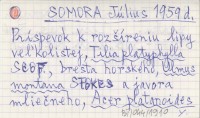 SOMORA Július 1959 d.
Príspevok k rozšíreniu lipy
veľkolistej, Tilia platyphylla
SCOP., bresta horského, Ulmus
montana STOKES a javora
mliečneho, Acer platanoides